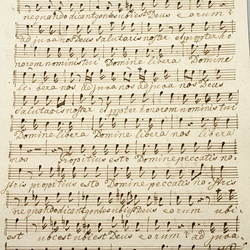 ne quando dicant gentes ubi est Deus eorum
adjuva nos Deus salutaris noster et propter ho
norem nominis tui Domine libera Domine
libera nos adjuva nos adjuva nos Deus
salutaris noster propter honorem nominis tui
Domine libera Domine libera nos libera
nos Propitius esto Domine peccatis no,
stris propitius esto Domine peccatis no, stris
ne quando dicant gentes ubi est Deus eorum ubi
est ubi est ubi est Deus eorum adjuva